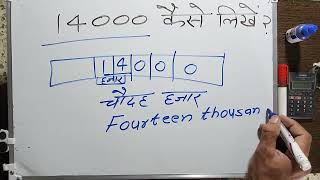 14000 कैसे लिखें?
1 4 0 0 0
हजार
चौदह हजार
Fourteen thousan